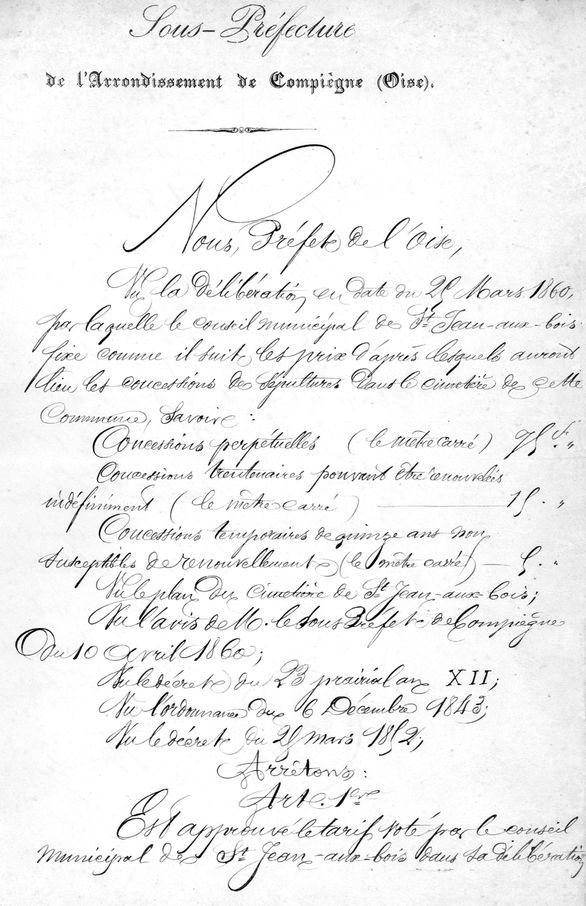 Sous-Préfecture
de l'Arrondissement de Compiègne (Oise).
Nous, Préfet de l'Oise,
Vu la délibération en date du 25 Mars 1860,
par laquelle le conseil municipal de St Jean-aux-bois
fixe comme il suit, les prix d'après lesquels auront
lieu les concessions de Sépultures dans le cimetière de cette
Commune, Savoir :
Concessions perpétuelles (le mètre carré) 75 f. "
Concessions trentenaires pouvant être renouvelées
indéfiniment (le mètre carré) — 15 . "
Concessions temporaires de quinze ans non
susceptibles de renouvellement (le mètre carré) — 5 . "
Vu le plan du cimetière de St Jean-aux-bois;
Vu l'avis de M. le Sous Préfet de Compiègne
du 10 avril 1860;
Vu le décret du 23 prairial an XII;
Vu l'ordonnance du 6 Décembre 1843;
Vu le décret du 25 mars 1852,
Arrêtons :
Art. 1er
Est approuvé le tarif voté par le conseil
municipal de St Jean-aux-bois dans sa délibération